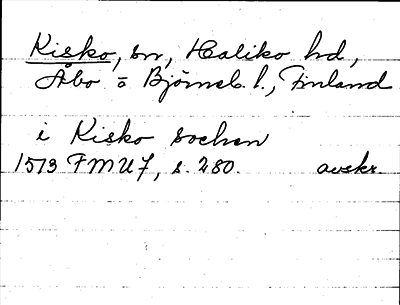 Kisko, sn, Haliko hd,
Åbo o Björneb. l., Finland
i Kisko sochen
1513 FMU 7, s. 280. avskr.